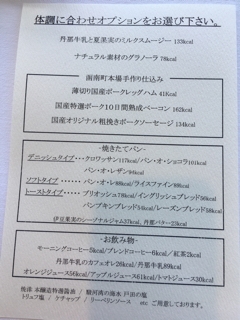 体調に合わせオプションをお選び下さい。
丹那牛乳と夏果実のミルクスムージー 133kcal
ナチュラル素材のグラノーラ 78kcal
函南町本場手作り仕込み
薄切り国産ポークレッグハム 41Kcal
国産特選ポーク10日間熟成ベーコン 162kcal
国産オリジナル粗挽きポークソーセージ 134kcal
-焼きたてパン-
デニッシュタイプ・・・クロワッサン117kcal/パン・オ・ショコラ101kcal
パン・オ・レザン95kcal
ソフトタイプ・・・パン・オ・レ88kcal/ライスファイン89kcal
トーストタイプ・・・ブリオッシュ78kcal/イングリッシュブレッド56kcal
パンプキンブレッド54kcal/レーズンブレッド58kcal
伊豆果実のシーズナルジャム37kcal、丹那バター23kcal
-お飲み物-
モーニングコーヒー5kcal/ブレンドコーヒー6kcal/紅茶2kcal
丹那牛乳のカフェオレ26kcal/丹那牛乳89kcal
オレンジジュース56kcal/アップルジュース61kcal/トマトジュース30kcal
他港 本醸造特選醤油 / 駿河湾の海水 戸田の塩
トリュフ塩 / ケチャップ / リーペリンソース etc ご用意しております。